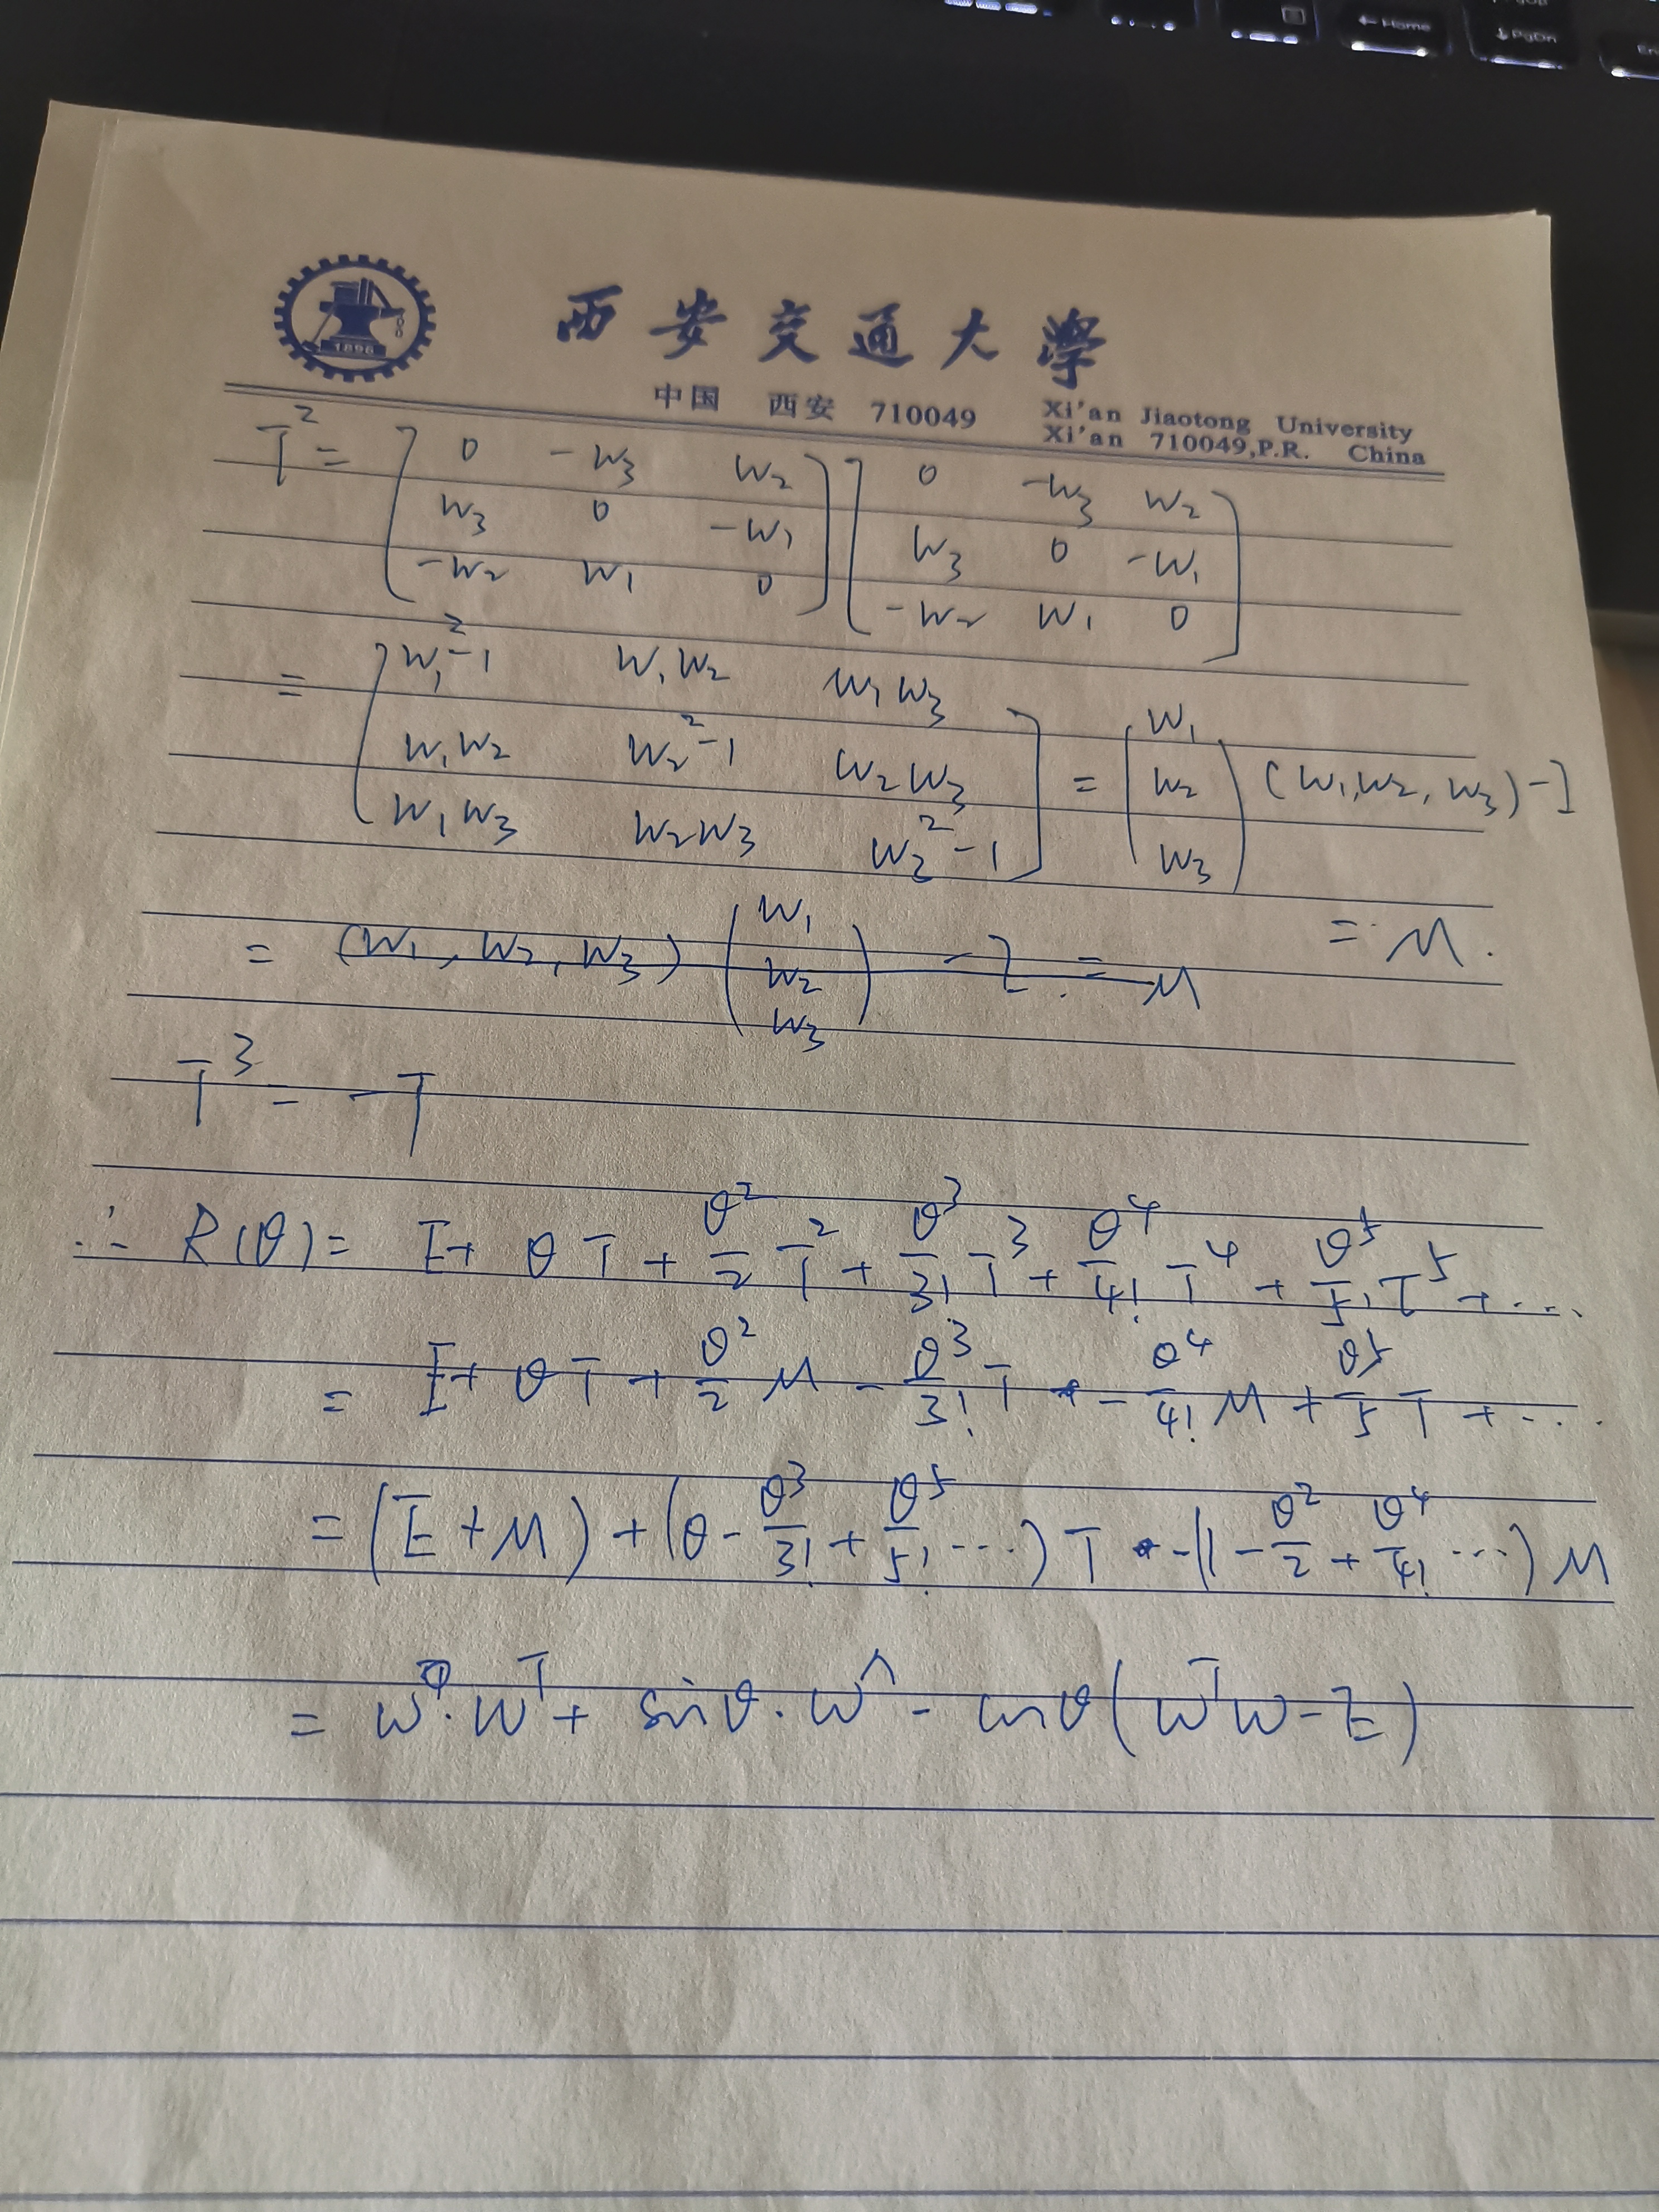 ← Home
PgDn
1896
西安交通大学
中国 西安 710049 Xi'an Jiaotong University
Xi'an 710049,P.R. China
T² = [0 -w₃ w₂; w₃ 0 -w₁; -w₂ w₁ 0] [0 -w₃ w₂; w₃ 0 -w₁; -w₂ w₁ 0]
= [w₁²-1 w₁w₂ w₁w₃; w₁w₂ w₂²-1 w₂w₃; w₁w₃ w₂w₃ w₃²-1] = (w₁; w₂; w₃) (w₁,w₂,w₃) - I
= M.
= (w₁, w₂, w₃) (w₁; w₂; w₃) - I = M
T³ = -T
∴ R(θ) = E + θT + θ²/2 T² + θ³/3! T³ + θ⁴/4! T⁴ + θ⁵/5! T⁵ + ...
= E + θT + θ²/2 M - θ³/3! T - θ⁴/4! M + θ⁵/5 T + ...
= (E + M) + (θ - θ³/3! + θ⁵/5! ...) T - (1 - θ²/2 + θ⁴/4! ...) M
= w·wᵀ + sinθ·w^ - cosθ(wᵀw - E)